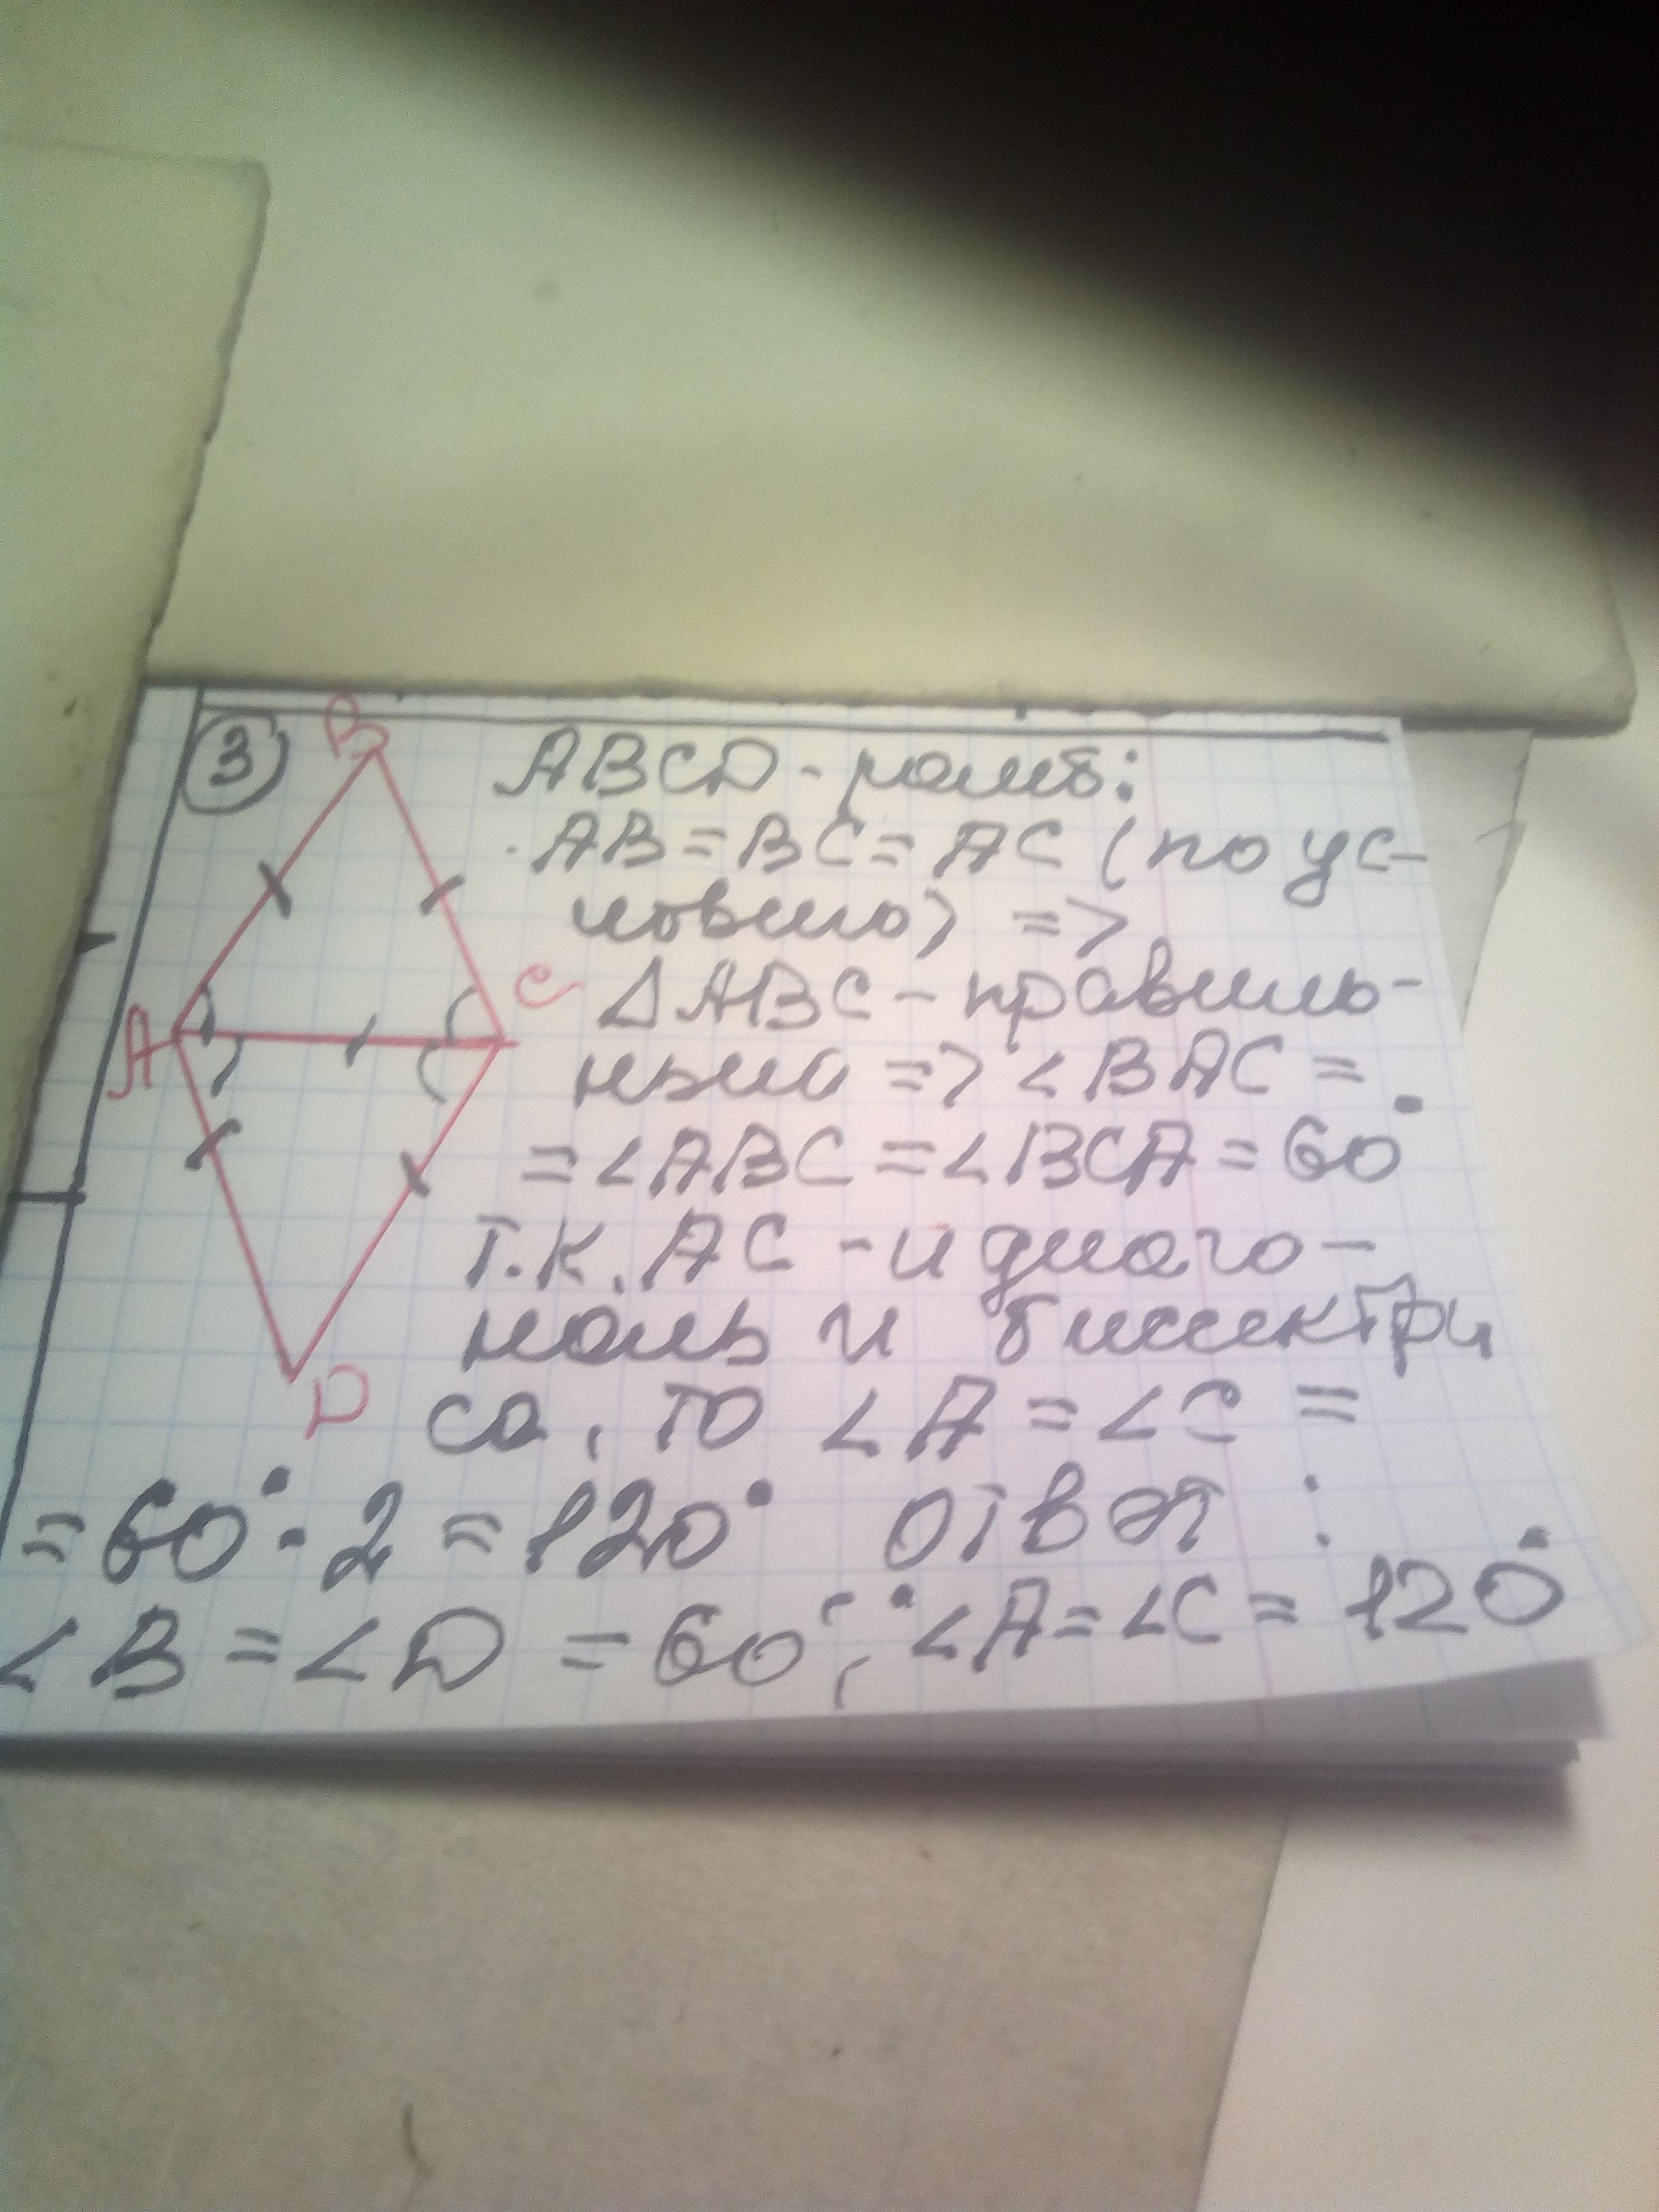 3
B
ABCD - ромб:
AB = BC = AC (по ус-
ловию) =>
C
△ABC - правиль-
A
ный => ∠BAC =
= ∠ABC = ∠BCA = 60°
Т.К. AC - и диаго-
наль и биссектри
D
са, то ∠A = ∠C =
= 60° · 2 = 120° Ответ:
∠B = ∠D = 60°; ∠A = ∠C = 120°